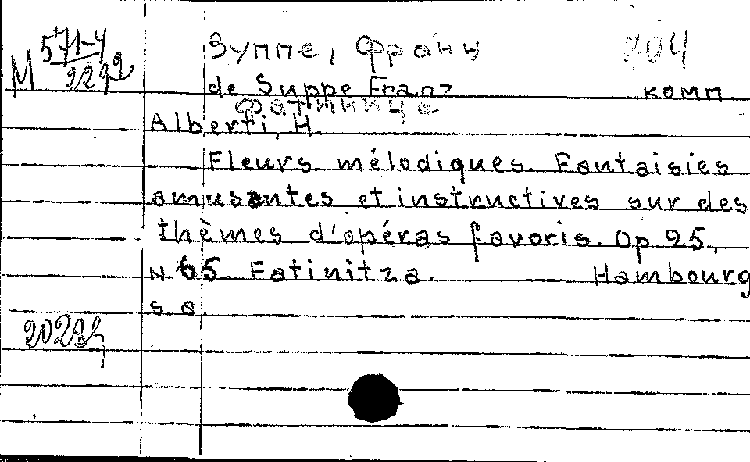 Зуппе, Франц
de Suppe Franz комп
Фатиница
Alberti, H.
Fleurs mélodiques. Fantaisies
amusantes et instructives sur des
thèmes d'opéras favoris. Op. 25.,
N 65 Fatinitza. Hambourg
s. a.
M 571-4